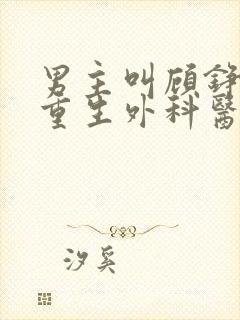 男主叫顾铮
重生外科醫
汐奚